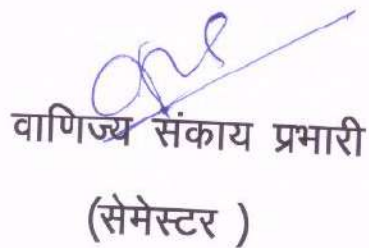 वाणिज्य संकाय प्रभारी
(सेमेस्टर )